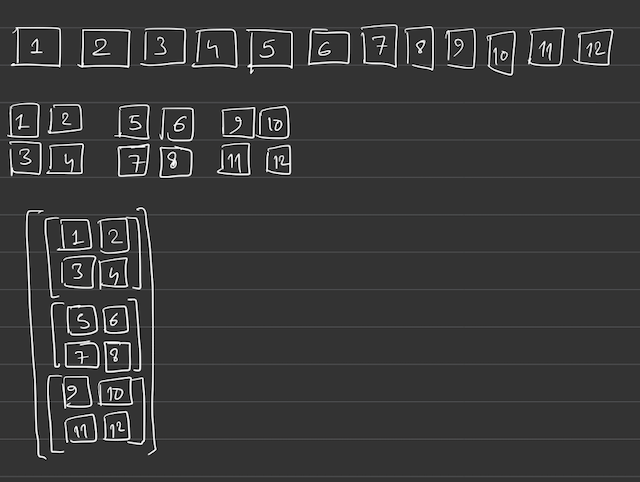 1 2 3 4 5 6 7 8 9 10 11 12
1 2 5 6 9 10
3 4 7 8 11 12
1 2
3 4
5 6
7 8
9 10
11 12